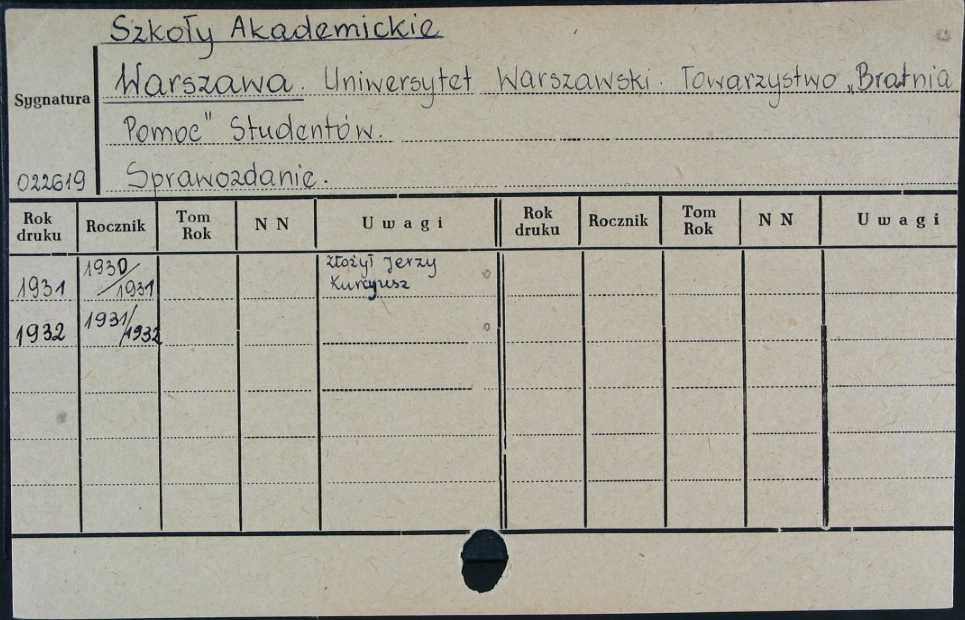 Szkoły Akademickie
Warszawa. Uniwersytet Warszawski. Towarzystwo „Bratnia
Sygnatura
Pomoc" Studentów.
022619 Sprawozdanie.
Rok druku Rocznik Tom Rok N N Uwagi Rok druku Rocznik Tom Rok N N Uwagi
1931 1930/1931 złożył Jerzy
Kurcyusz
1932 1931/1932